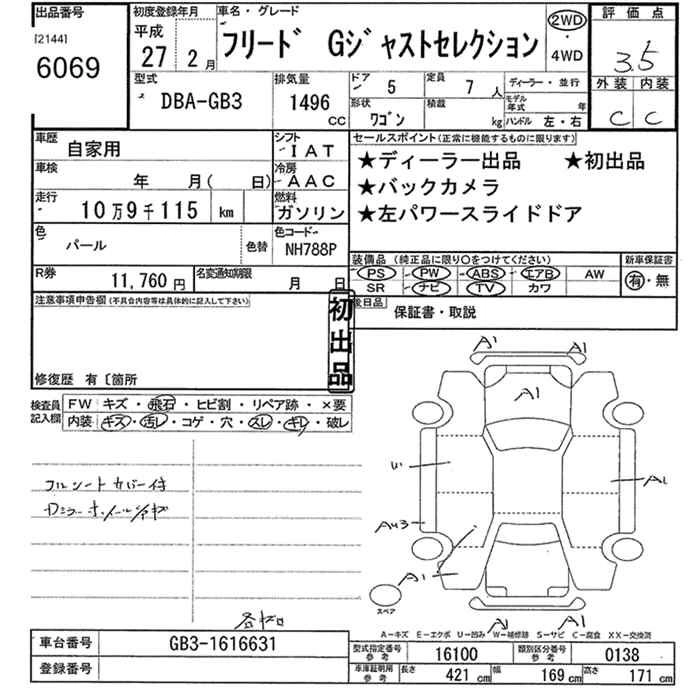 出品番号
[2144]
6069
初度登録年月
平成
27 2月
車名・グレード
フリード Gジャストセレクション
2WD
・
4WD
評価点
3.5
外装 内装
C C
型式
DBA-GB3
排気量
1496
CC
ドア 5
形状 ワゴン
定員 7人
積載 kg
ディーラー・並行
モデル年式 年
ハンドル 左・右
車歴 自家用
シフト IAT
車検 年 月( 日)
冷房 AAC
走行 10万9千115 km
燃料 ガソリン
色 パール
色替
色コード NH788P
R券 11,760円
名変通知期限 月 日
セールスポイント(正常に機能するものに限ります)
★ディーラー出品 ★初出品
★バックカメラ
★左パワースライドドア
装備品 (純正品に限り○をつけてください)
新車保証書
PS PW ABS エアB AW
SR ナビ TV カワ
有・無
後日品
保証書・取説
注意事項申告欄(不具合内容等は具体的に記入して下さい)
初出品
修復歴 有〔箇所
検査員記入欄
FW キズ・飛石・ヒビ割・リペア跡・×要
内装 キズ・汚レ・コゲ・穴・スレ・キレ・破レ
フルシートカバー付
A1 A1
A1
A1
A1
A1 A1
スペア
A-キズ E-エクボ U-凹み W-補修跡 S-サビ C-腐食 XX-交換済
車台番号 GB3-1616631
登録番号
型式指定番号 参考 16100
類別区分番号 参考 0138
車庫証明用 参考 長さ 421 cm 幅 169 cm 高さ 171 cm